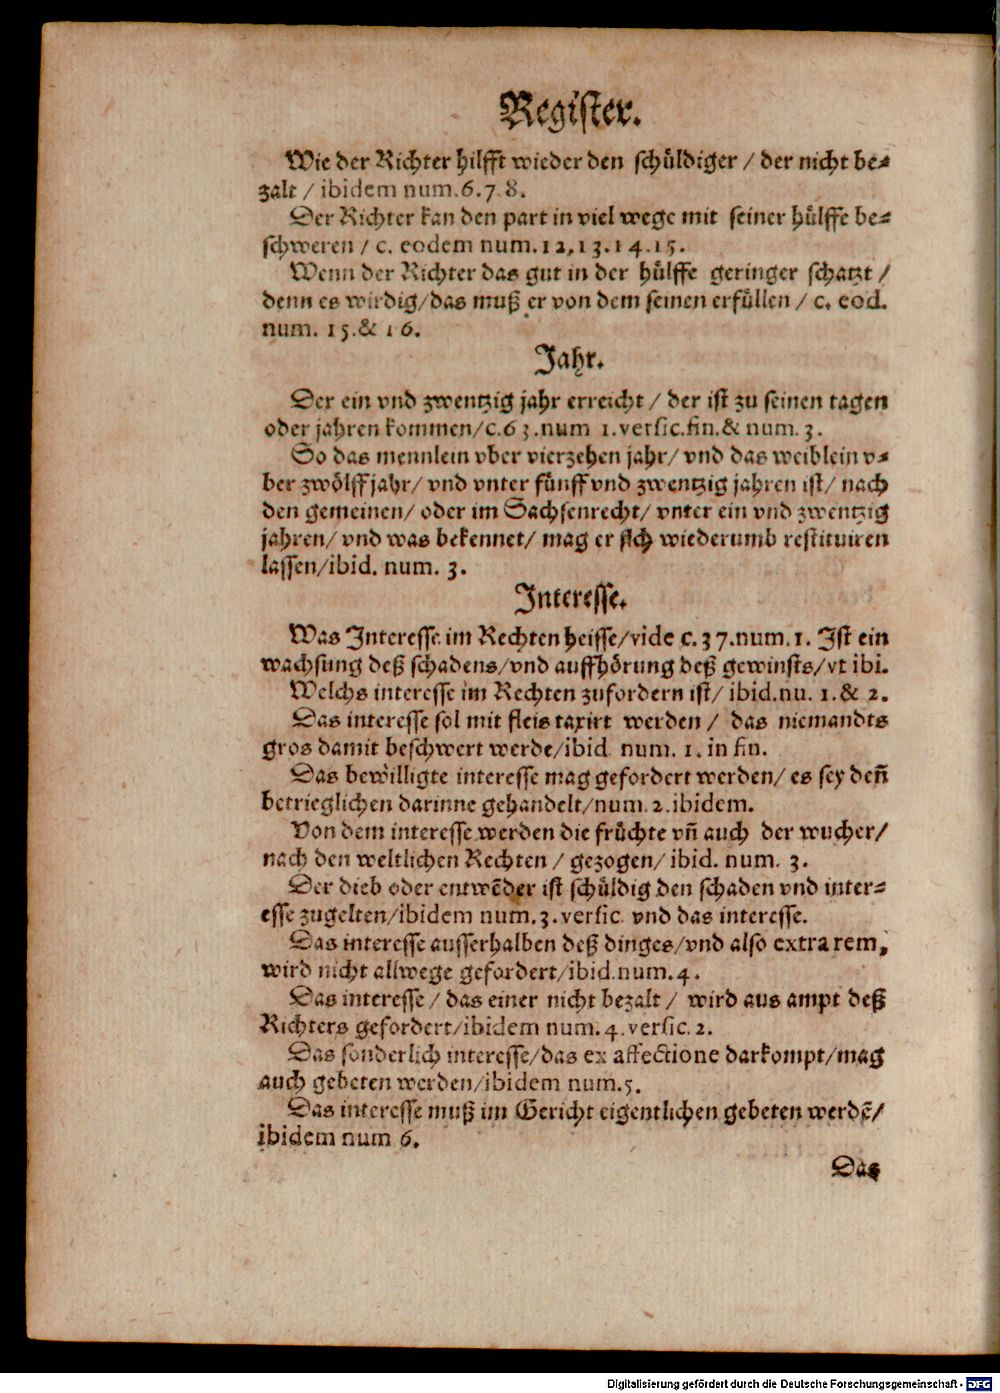 Register.
Wie der Richter hilfft wieder den schůldiger / der nicht be⸗
zalt / ibidem num.6.7 8.
Der Richter kan den part in viel wege mit seiner hůlffe be⸗
schweren / c. eodem num.12,13.14.15.
Wenn der Richter das gut in der hůlffe geringer schatzt /
denn es wirdig/das muß er von dem seinen erfůllen / c. eod.
num. 15.& 16.
Jahr.
Der ein vnd zwentzig jahr erreicht / der ist zu seinen tagen
oder jahren kommen/c.63.num 1.versic.fin.& num. 3.
So das mennlein vber vierzehen jahr/ vnd das weiblein v⸗
ber zwölff jahr/ vnd vnter fůnff vnd zwentzig jahren ist/ nach
den gemeinen/ oder im Sachsenrecht/ vnter ein vnd zwentzig
jahren/ vnd was bekennet/ mag er sich wiederumb restituiren
lassen/ibid. num. 3.
Interesse.
Was Interesse im Rechten heisse/vide c.37.num.1. Ist ein
wachsung deß schadens/vnd auffhörung deß gewinsts/vt ibi.
Welchs interesse im Rechten zufordern ist/ ibid.nu. 1.& 2.
Das interesse sol mit fleis taxirt werden / das niemandts
gros damit beschwert werde/ibid num. 1. in fin.
Das bewilligte interesse mag gefordert werden/ es sey deñ
betrieglichen darinne gehandelt/num.2.ibidem.
Von dem interesse werden die frůchte vñ auch der wucher/
nach den weltlichen Rechten / gezogen/ ibid. num. 3.
Der dieb oder entwẽder ist schůldig den schaden vnd inter⸗
esse zugelten/ibidem num.3.versic. vnd das interesse.
Das interesse ausserhalben deß dinges/vnd also extra rem,
wird nicht allwege gefordert/ibid.num.4.
Das interesse / das einer nicht bezalt / wird aus ampt deß
Richters gefordert/ibidem num.4.versic.2.
Das sonderlich interesse/das ex affectione darkompt/mag
auch gebeten werden/ibidem num.5.
Das interesse muß im Gericht eigentlichen gebeten werdẽ/
ibidem num 6.
Das
Digitalisierung gefördert durch die Deutsche Forschungsgemeinschaft - DFG